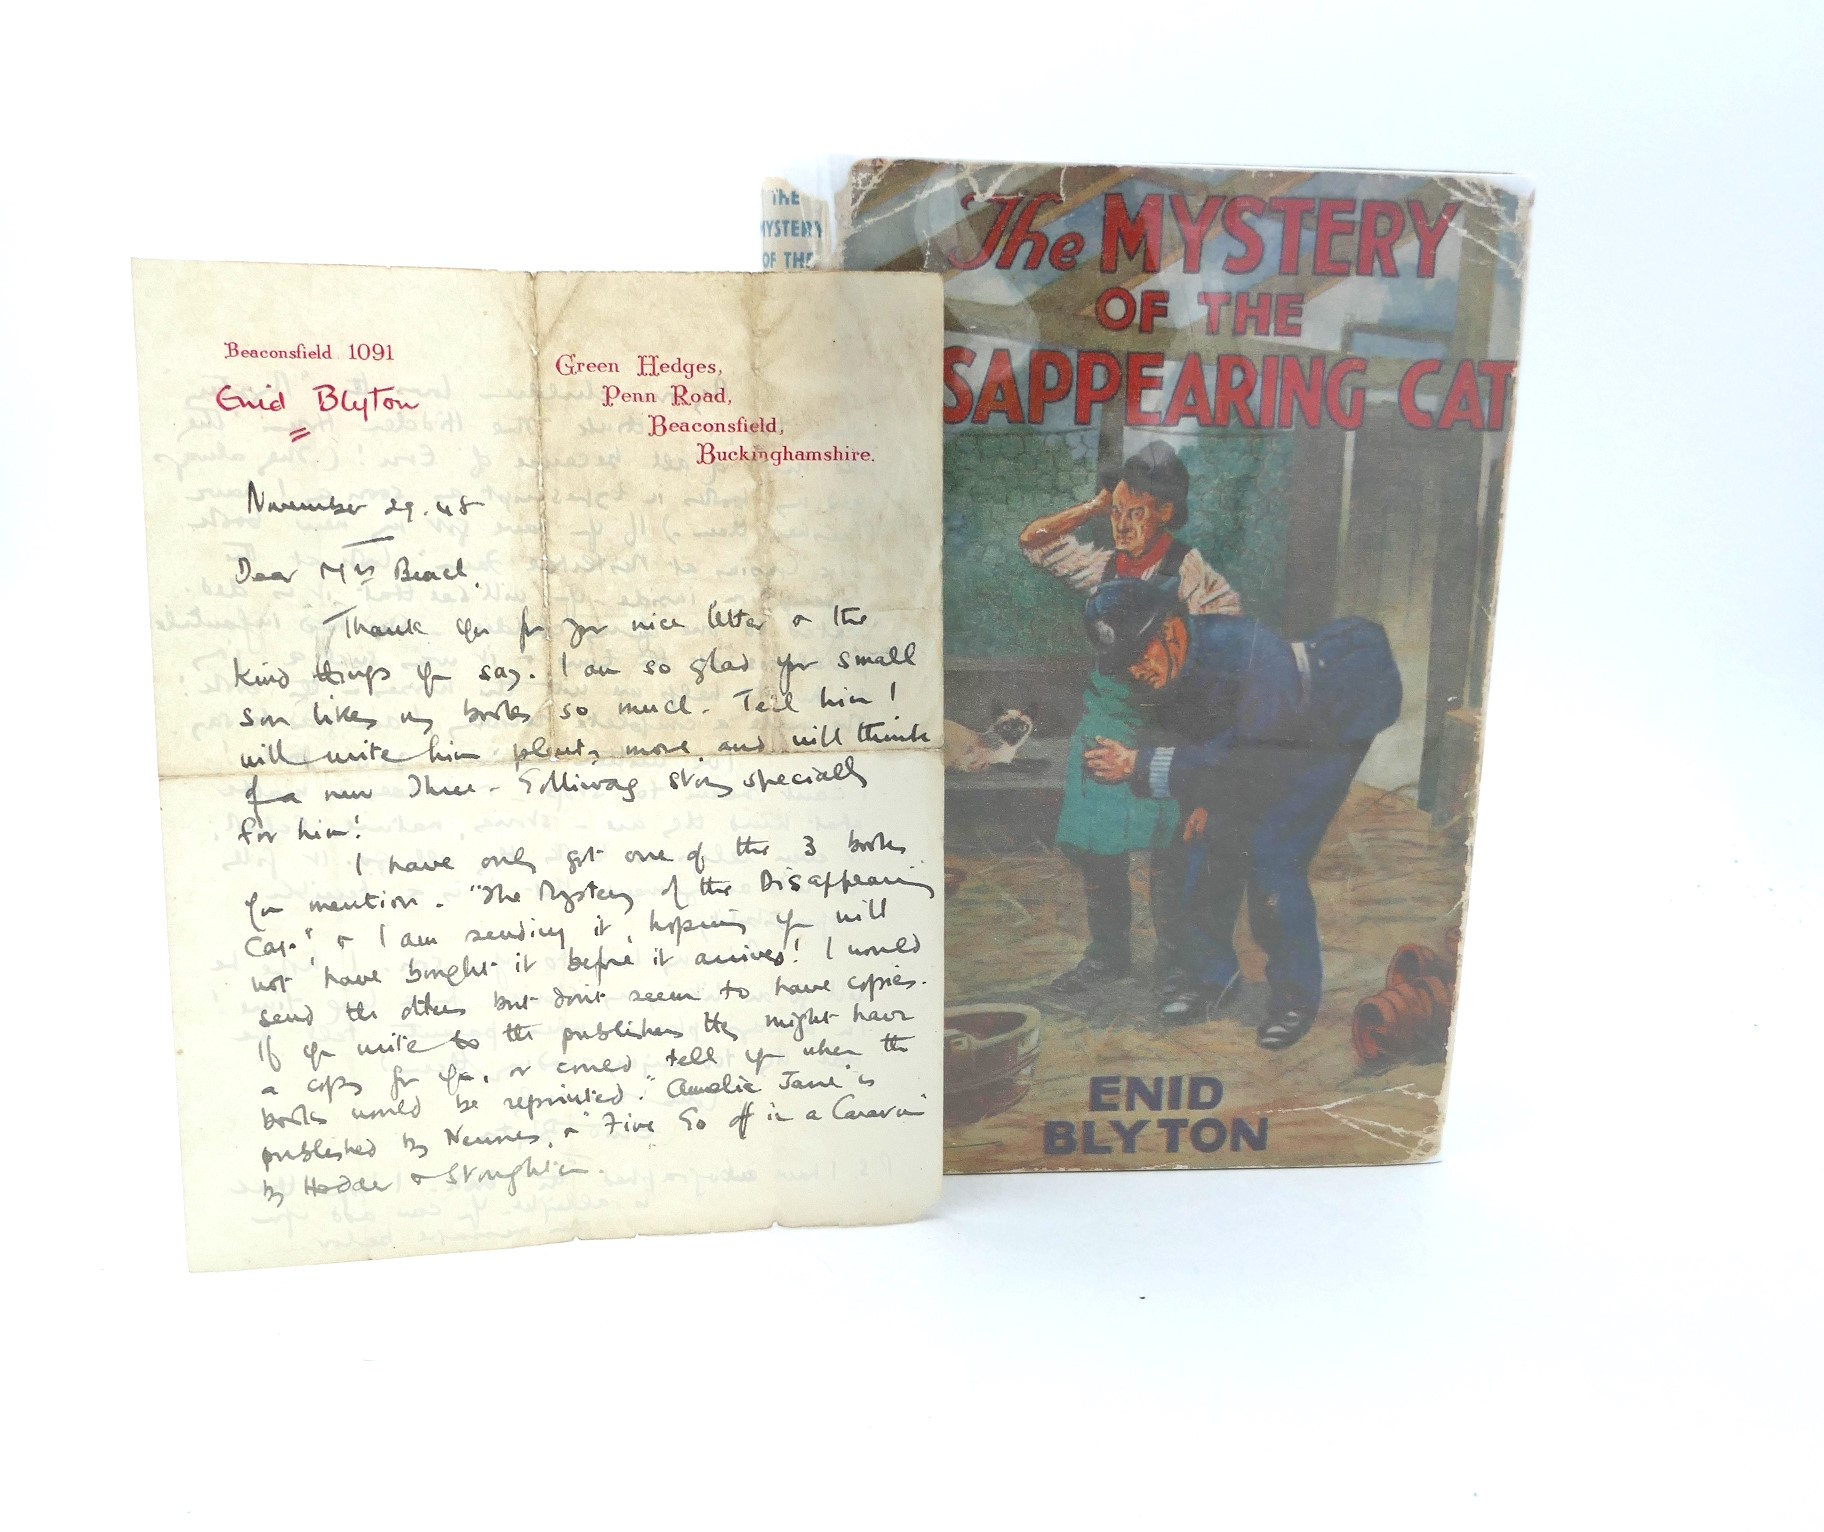 Beaconsfield 1091
Enid Blyton
Green Hedges,
Penn Road,
Beaconsfield,
Buckinghamshire.
November 29. 48
Dear Mrs Beach,
Thank you for your nice letter & the
kind things you say. I am so glad your small
son likes my books so much. Tell him I
will write him plenty more and will think
of a new Three-Golliwog story specially
for him!
I have only got one of the 3 books
you mention - "The Mystery of the Disappearing
Cat" & I am sending it, hoping you will
not have bought it before it arrives! I would
send the others but don't seem to have copies.
If you write to the publishers they might have
a copy for you, or could tell you when the
books would be reprinted. "Amelia Jane" is
published by Newnes, & "Five Go off in a Caravan"
by Hodder & Stoughton.
THE
MYSTERY
OF THE
The MYSTERY
OF THE
SAPPEARING CAT
ENID
BLYTON